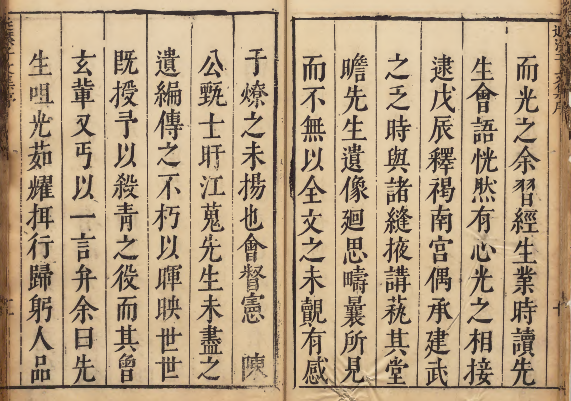 而光之余習經生業時讀先
生會語恍然有心光之相接
逮戊辰釋褐南宮偶承建武
之乏時與諸縫掖講蓺其堂
瞻先生遺像廻思疇曩所見
而不無以全文之未覩有感
于燎之未揚也會督憲 陳
公甄士旰江蒐先生未盡之
遺編傳之不朽以暉映世世
既授予以殺青之役而其曾
玄輩又丐以一言弁余曰先
生咀光茹耀珥行歸躬人品